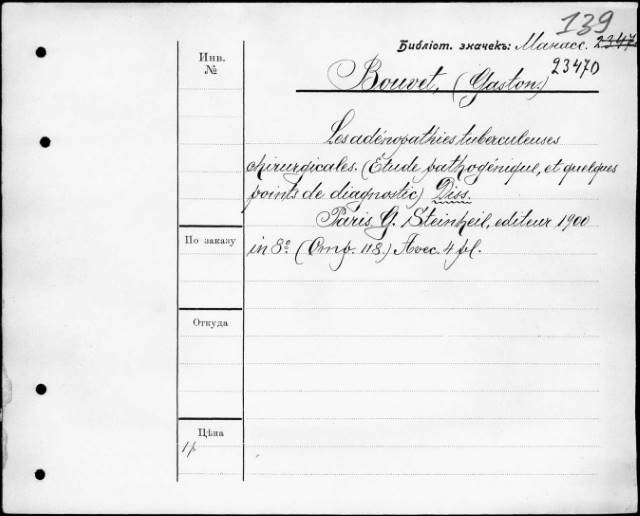 139
Библіот. значекъ: Манасс. 2347
23470
Инв.
№
Bouvet, (Gaston.)
Les adénopathies tuberculeuses
chirurgicales. (Étude pathogénique, et quelques
points de diagnostic) Diss.
Paris, G. Steinheil, editeur 1900
in 8º. (Стр. 118.) Avec. 4 pl.
По заказу
Откуда
Цѣна
1 р